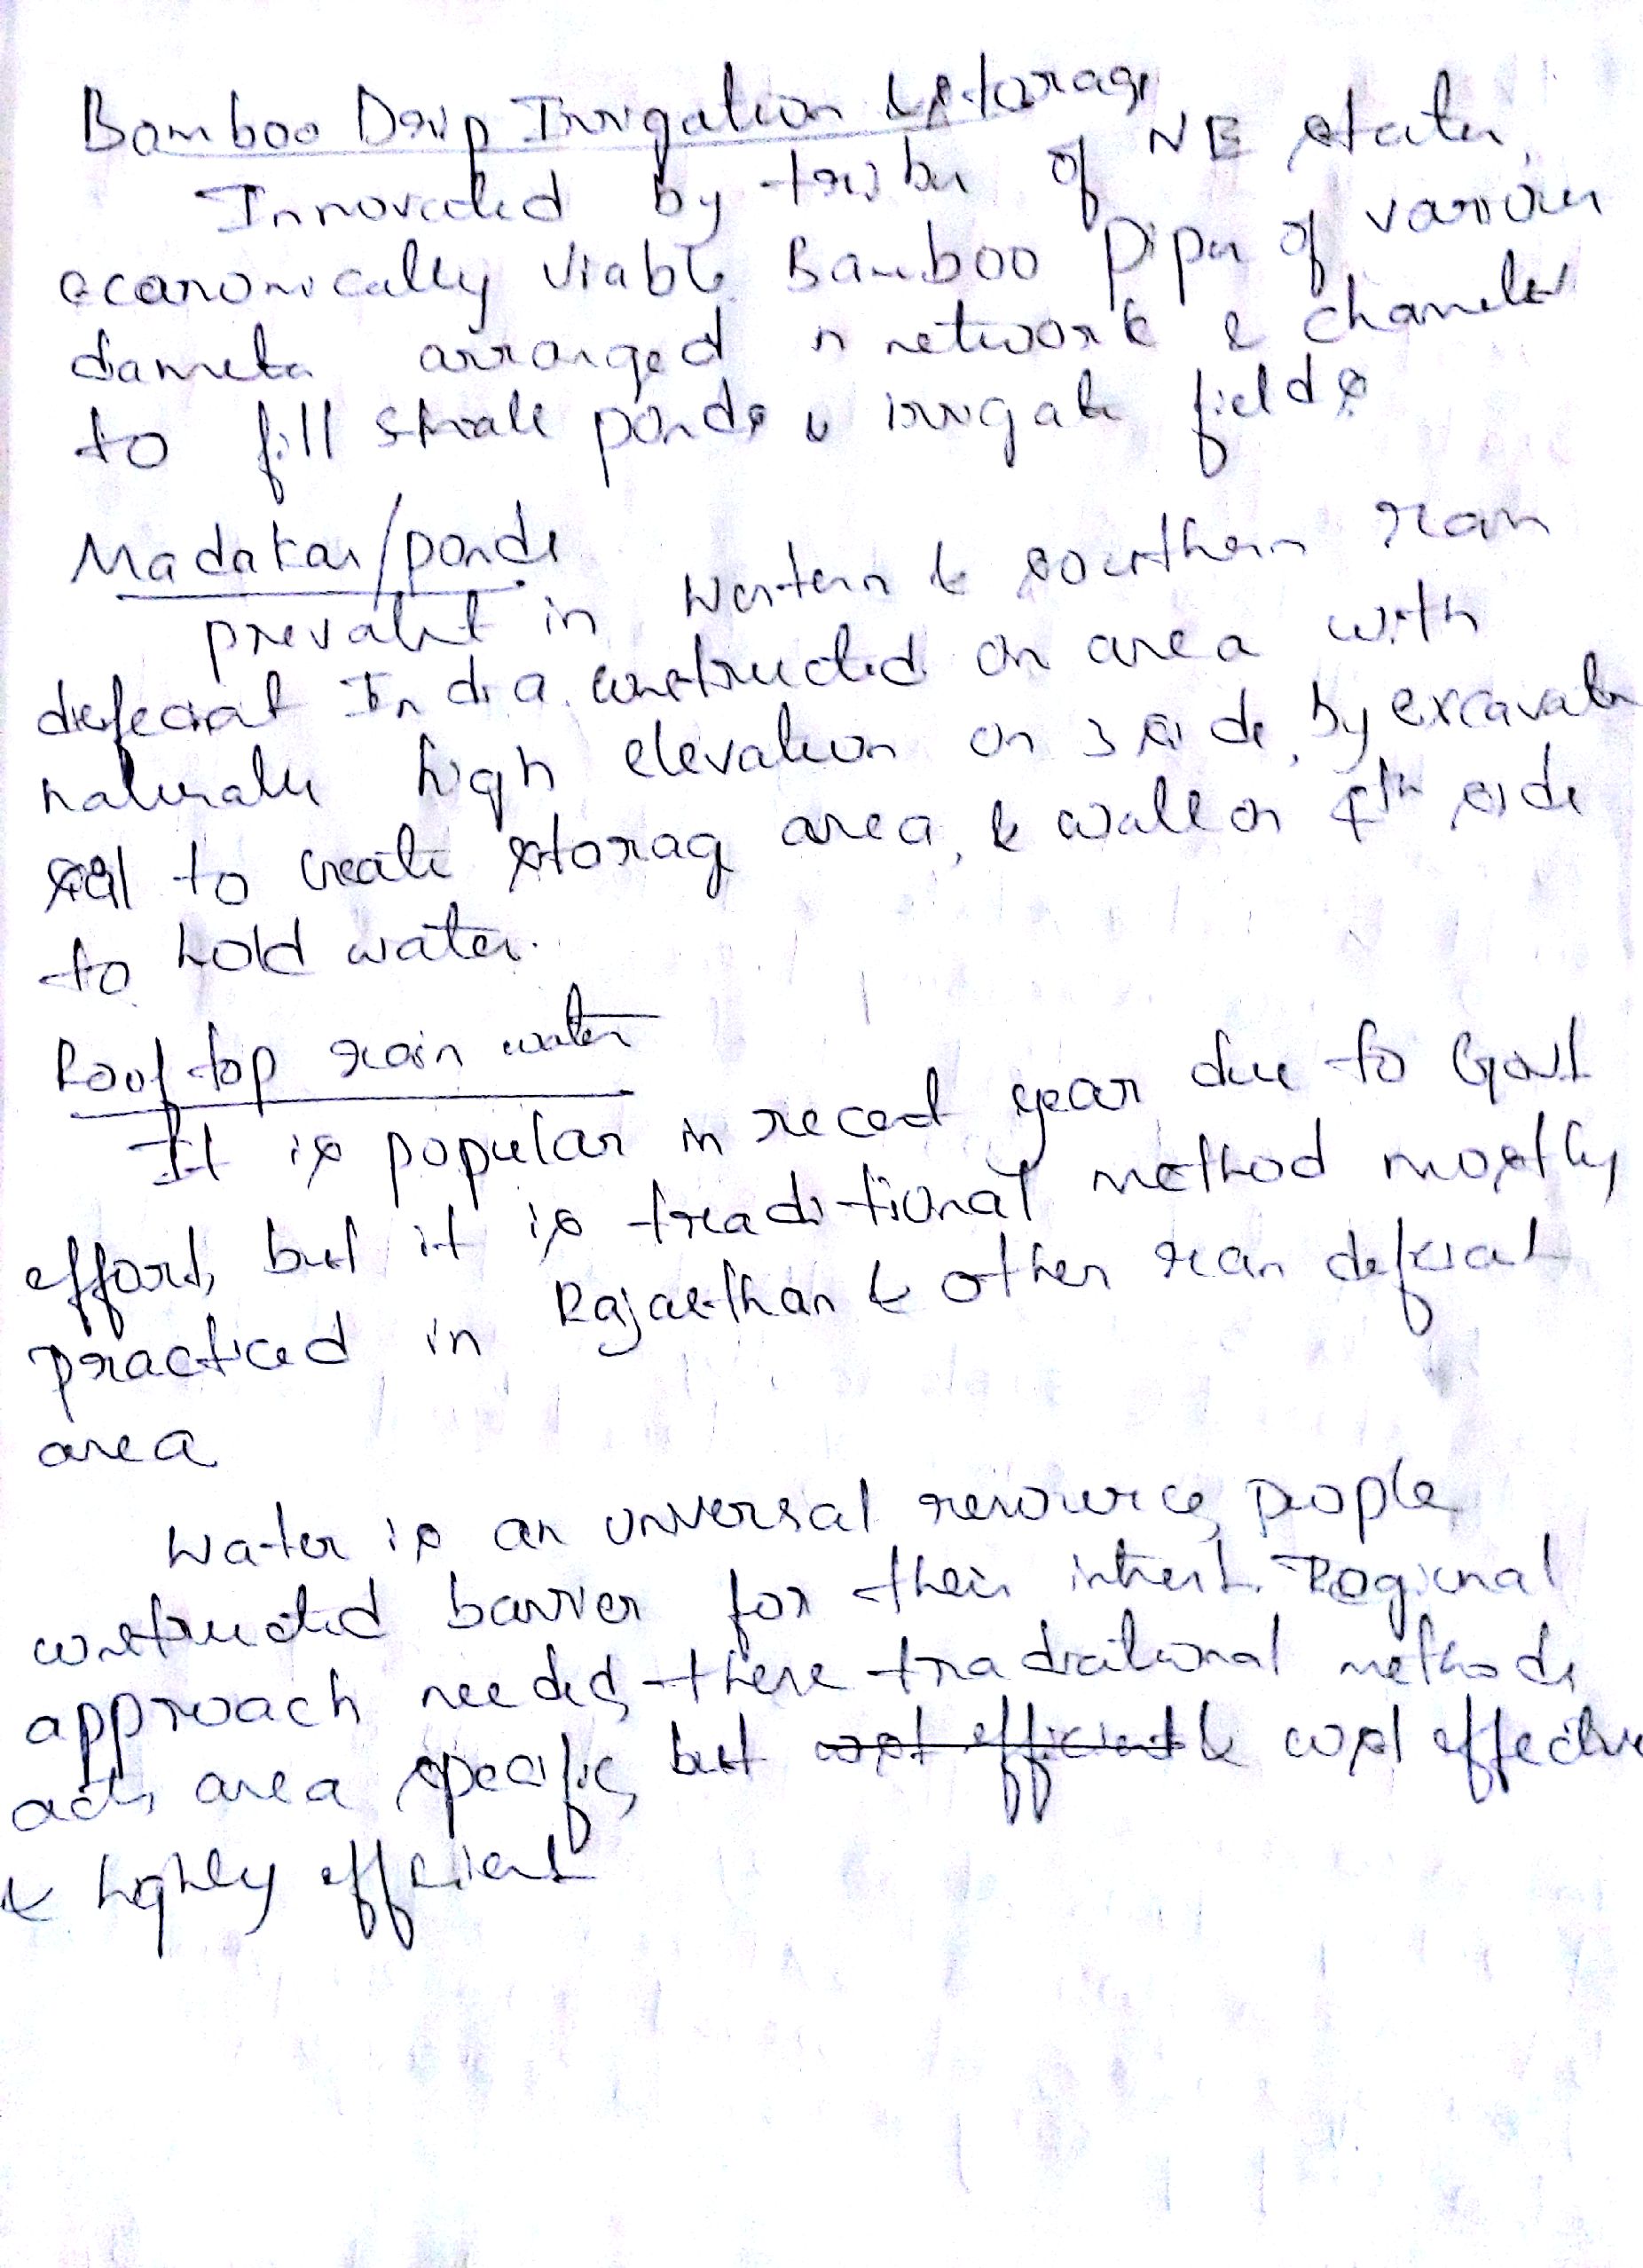 Bamboo Drip Irrigation & storage
Innovated by tribes of NE states,
economically viable Bamboo pipes of various
diameter arranged in network & channeled
to fill small ponds & irrigate fields
Madakas/ponds
prevalent in western & southern rain
deficiat India. constructed on area with
naturally high elevation on 3 side, by excavate
soil to create storage area, & wall on 4th side
to hold water.
Roof top rain water
It is popular in recent year due to Govt
effort, but it is traditional method mostly
practiced in Rajasthan & other rain deficiat
area
Water is an universal resource, people
constructed barrier for their interest. Regional
approach needed, these tradicitional methods
acts area specific, but cost efficient & cost effective
& highly efficient